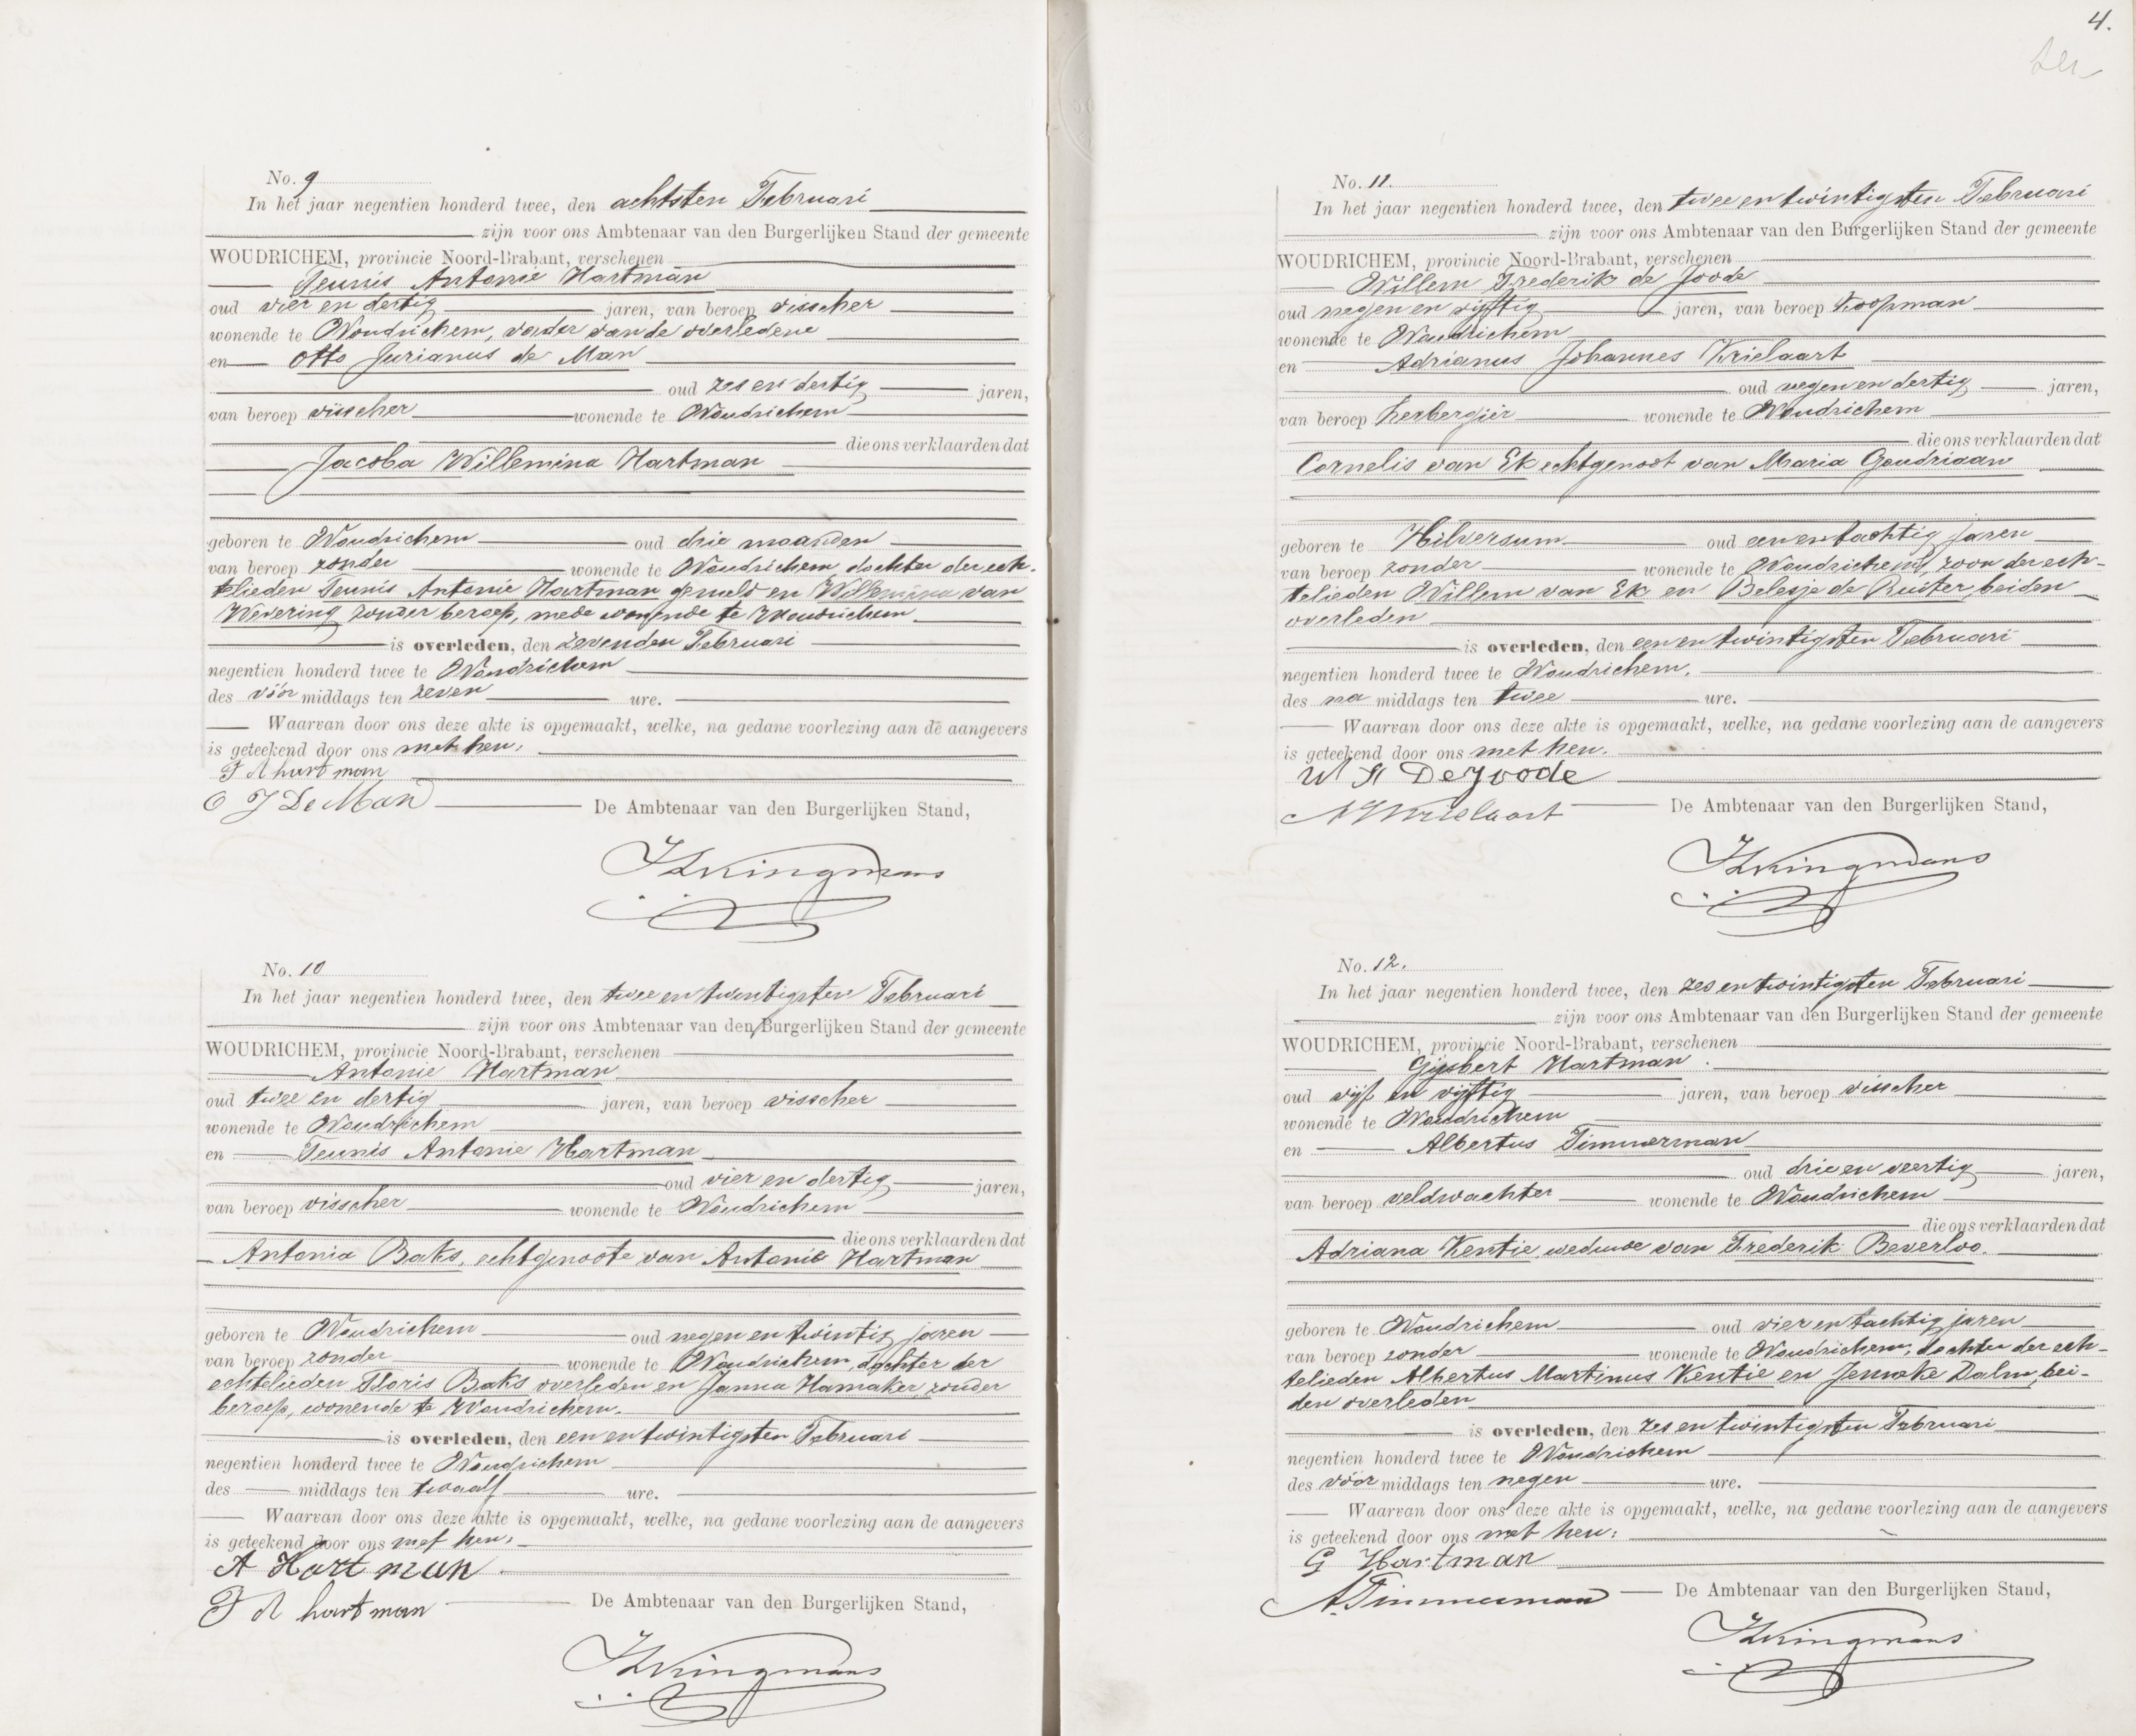 No. 9
In het jaar negentien honderd twee, den achtsten Februari
zijn voor ons Ambtenaar van den Burgerlijken Stand der gemeente
WOUDRICHEM, provincie Noord-Brabant, verschenen
Teunis Antonie Hartman
oud vier en dertig jaren, van beroep visscher
wonende te Woudrichem, vader van de overledene
en Otto Jurianus de Man
oud zes en dertig jaren,
van beroep visscher wonende te Woudrichem
die ons verklaarden dat
Jacoba Willemina Hartman
geboren te Woudrichem oud drie maanden
van beroep zonder wonende te Woudrichem dochter der ech-
telieden Teunis Antonie Hartman gemeld en Willemina van
Wevering zonder beroep, mede wonende te Woudrichem
is overleden, den zevenden Februari
negentien honderd twee te Woudrichem
des vóór middags ten zeven ure.
Waarvan door ons deze akte is opgemaakt, welke, na gedane voorlezing aan de aangevers
is geteekend door ons met hen,
T A hartman
O J De Man De Ambtenaar van den Burgerlijken Stand,
Kingmans
No. 10
In het jaar negentien honderd twee, den twee en twintigsten Februari
zijn voor ons Ambtenaar van den Burgerlijken Stand der gemeente
WOUDRICHEM, provincie Noord-Brabant, verschenen
Antonie Hartman
oud twee en dertig jaren, van beroep visscher
wonende te Woudrichem
en Teunis Antonie Hartman
oud vier en dertig jaren,
van beroep visscher wonende te Woudrichem
die ons verklaarden dat
Antonia Baks, echtgenoote van Antonie Hartman
geboren te Woudrichem oud negen en twintig jaren
van beroep zonder wonende te Woudrichem, dochter der
echtelieden Floris Baks overleden en Janna Hamaker zonder
beroep, wonende te Woudrichem.
is overleden, den een en twintigsten Februari
negentien honderd twee te Woudrichem
des middags ten twaalf ure.
Waarvan door ons deze akte is opgemaakt, welke, na gedane voorlezing aan de aangevers
is geteekend door ons met hen,
A Hartman
T A hartman De Ambtenaar van den Burgerlijken Stand,
Kingmans
4.
No. 11.
In het jaar negentien honderd twee, den twee en twintigsten Februari
zijn voor ons Ambtenaar van den Burgerlijken Stand der gemeente
WOUDRICHEM, provincie Noord-Brabant, verschenen
Willem Frederik de Joode
oud negen en vijftig jaren, van beroep Koopman
wonende te Woudrichem
en Adrianus Johannes Krielaart
oud negen en dertig jaren,
van beroep herbergier wonende te Woudrichem
die ons verklaarden dat
Cornelis van Ek echtgenoot van Maria Goudriaan
geboren te Hilversum oud een en tachtig jaren
van beroep zonder wonende te Woudrichem, zoon der ech-
telieden Willem van Ek en Belesje de Ruiter, beiden
overleden
is overleden, den een en twintigsten Februari
negentien honderd twee te Woudrichem.
des na middags ten twee ure.
Waarvan door ons deze akte is opgemaakt, welke, na gedane voorlezing aan de aangevers
is geteekend door ons met hen.
W F De Joode
A J Krielaart De Ambtenaar van den Burgerlijken Stand,
Kingmans
No. 12.
In het jaar negentien honderd twee, den zes en twintigsten Februari
zijn voor ons Ambtenaar van den Burgerlijken Stand der gemeente
WOUDRICHEM, provincie Noord-Brabant, verschenen
Gijsbert Hartman
oud vijf en vijftig jaren, van beroep visscher
wonende te Woudrichem
en Albertus Timmerman
oud drie en veertig jaren,
van beroep veldwachter wonende te Woudrichem
die ons verklaarden dat
Adriana Kentie, weduwe van Frederik Beverloo.
geboren te Woudrichem oud vier en tachtig jaren
van beroep zonder wonende te Woudrichem, dochter der ech-
telieden Albertus Martinus Kentie en Jenneke Dalm, bei-
den overleden
is overleden, den zes en twintigsten Februari
negentien honderd twee te Woudrichem
des vóór middags ten negen ure.
Waarvan door ons deze akte is opgemaakt, welke, na gedane voorlezing aan de aangevers
is geteekend door ons met hen:
G Hartman
A. Timmerman De Ambtenaar van den Burgerlijken Stand,
Kingmans